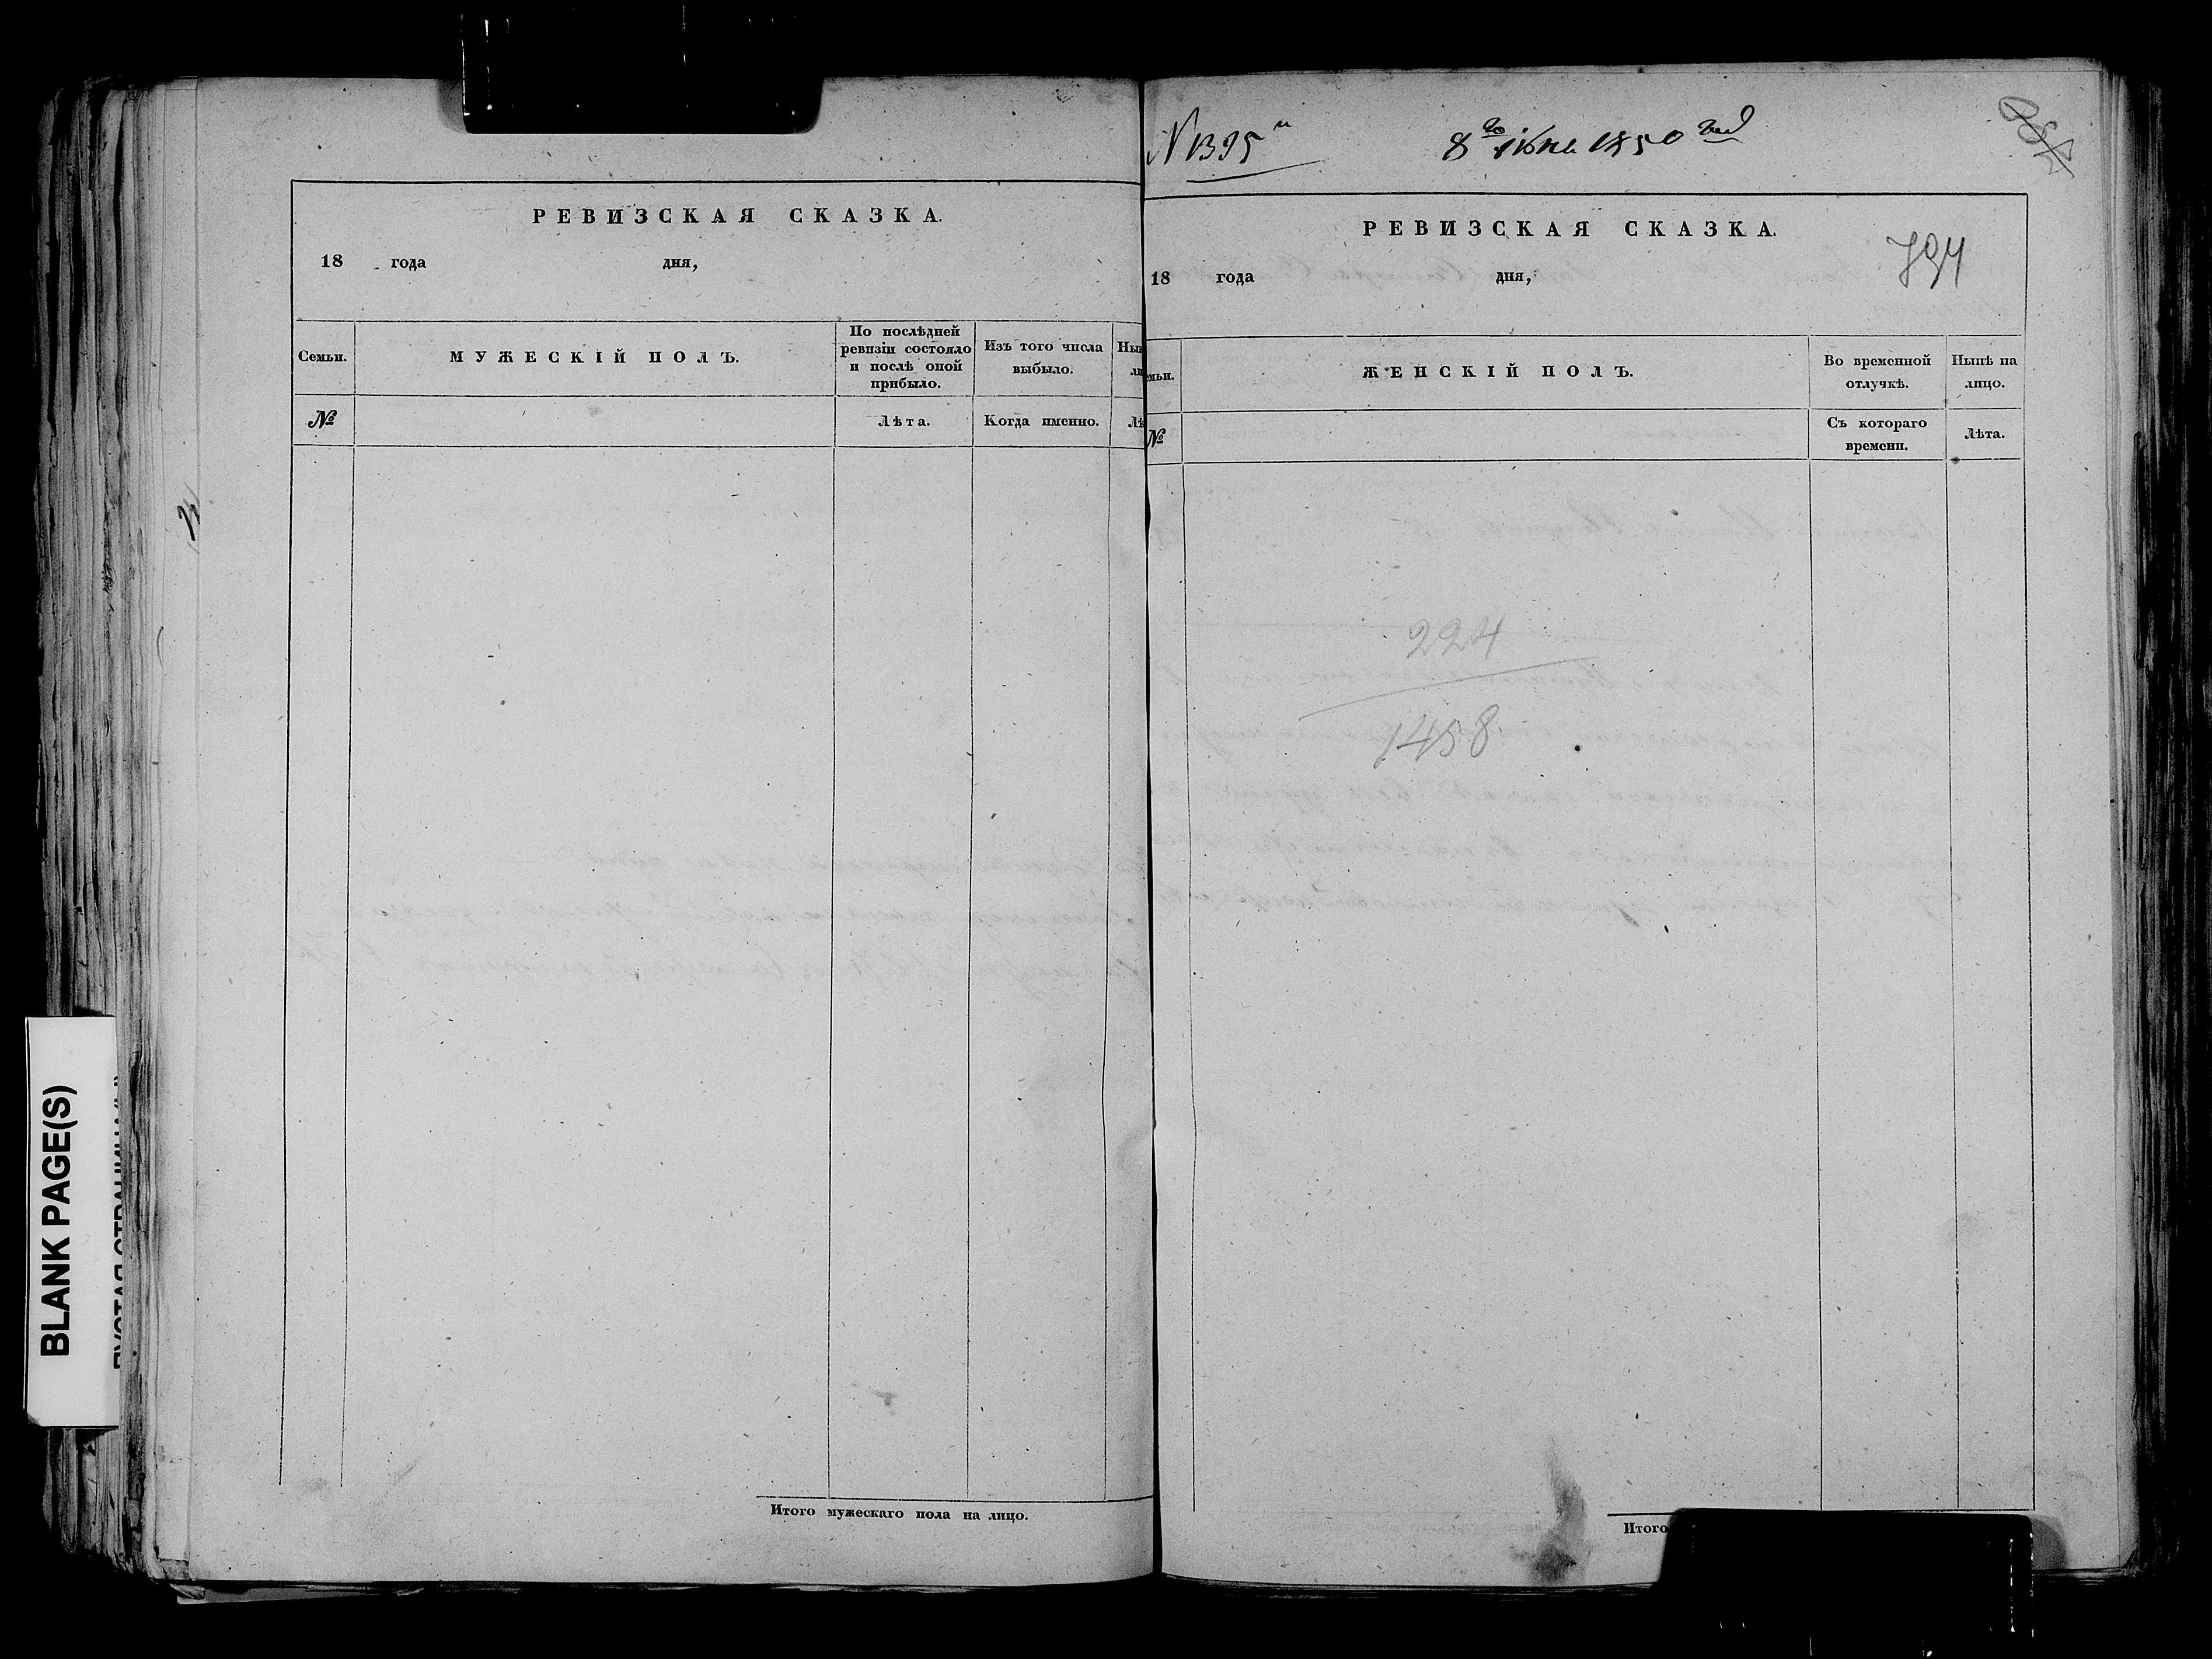 РЕВИЗСКАЯ СКАЗКА.
18 года дня,
Семьи.
МУЖЕСКІЙ ПОЛЪ.
По послѣдней ревизіи состояло и послѣ оной прибыло.
Изъ того числа выбыло.
№
Лѣта.
Когда именно.
Итого мужескаго пола на лицо.
N 1395
8го 1850
794
РЕВИЗСКАЯ СКАЗКА.
18 года дня,
ЖЕНСКІЙ ПОЛЪ.
Во временной отлучкѣ.
Нынѣ на лицо.
№
Съ котораго времени.
Лѣта.
224
1458
Итого
BLANK PAGE(S)